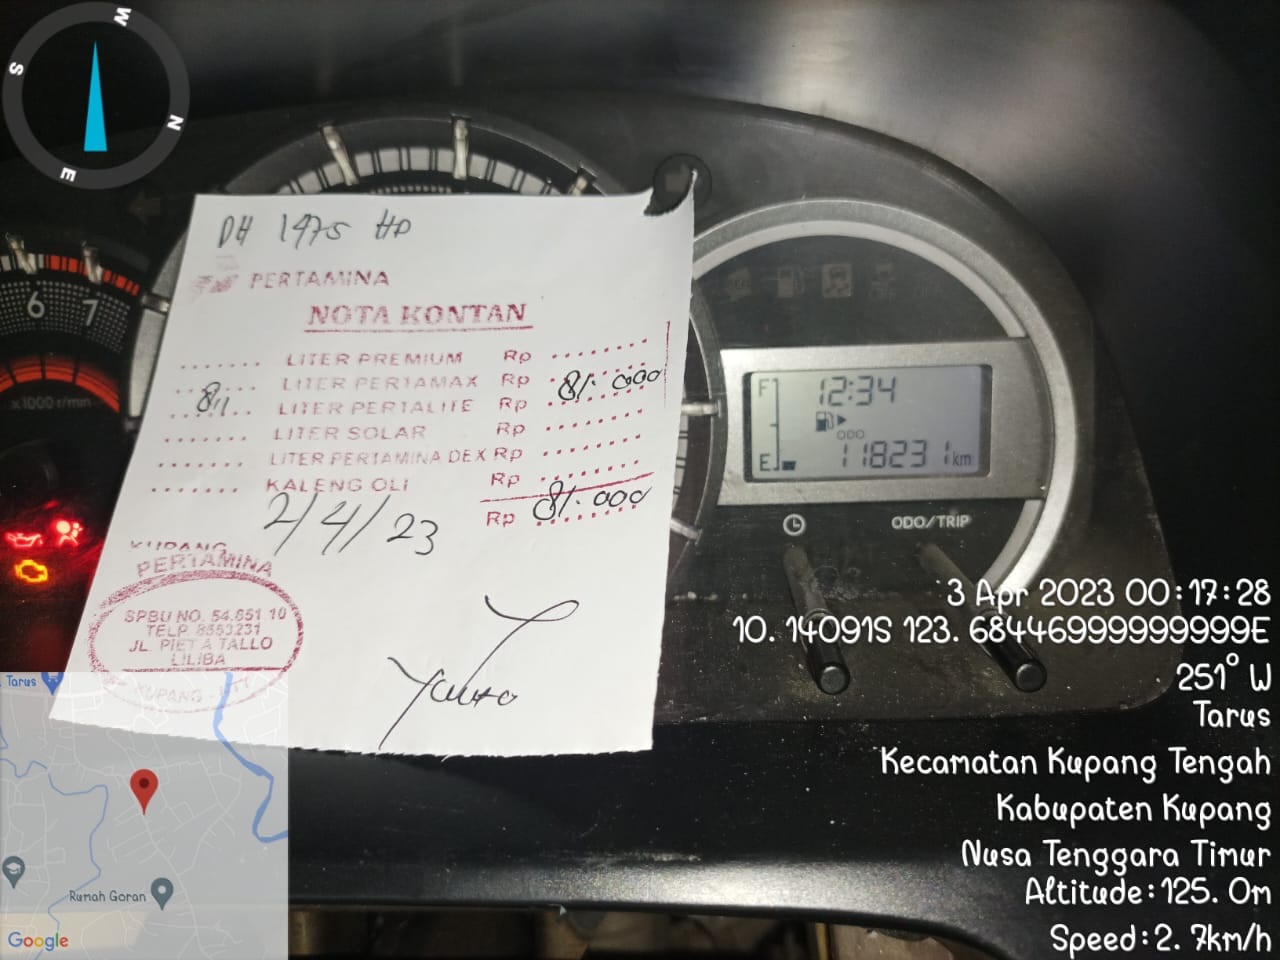 W
S
N
E
DH 1475 HP
PERTAMINA
NOTA KONTAN
....... LITER PREMIUM Rp ........
....... LITER PERTAMAX Rp 81.000
LITER PERTALITE Rp ........
....... LITER SOLAR Rp ........
....... LITER PERTAMINA DEX Rp ........
....... KALENG OLI Rp ........
Rp 81.000
2/4/23
KUPANG
PERTAMINA
SPBU NO. 54.851 10
TELP. 8553231
JL. PIET A TALLO
LILIBA
6 7
x1000 r/min
F
12:34
ODO
E 118231 km
ODO/TRIP
3 Apr 2023 00:17:28
10.14091S 123.68446999999999E
251° W
Tarus
Kecamatan Kupang Tengah
Kabupaten Kupang
Nusa Tenggara Timur
Altitude:125.0m
Speed:2.7km/h
Tarus
Rumah Goran
Google